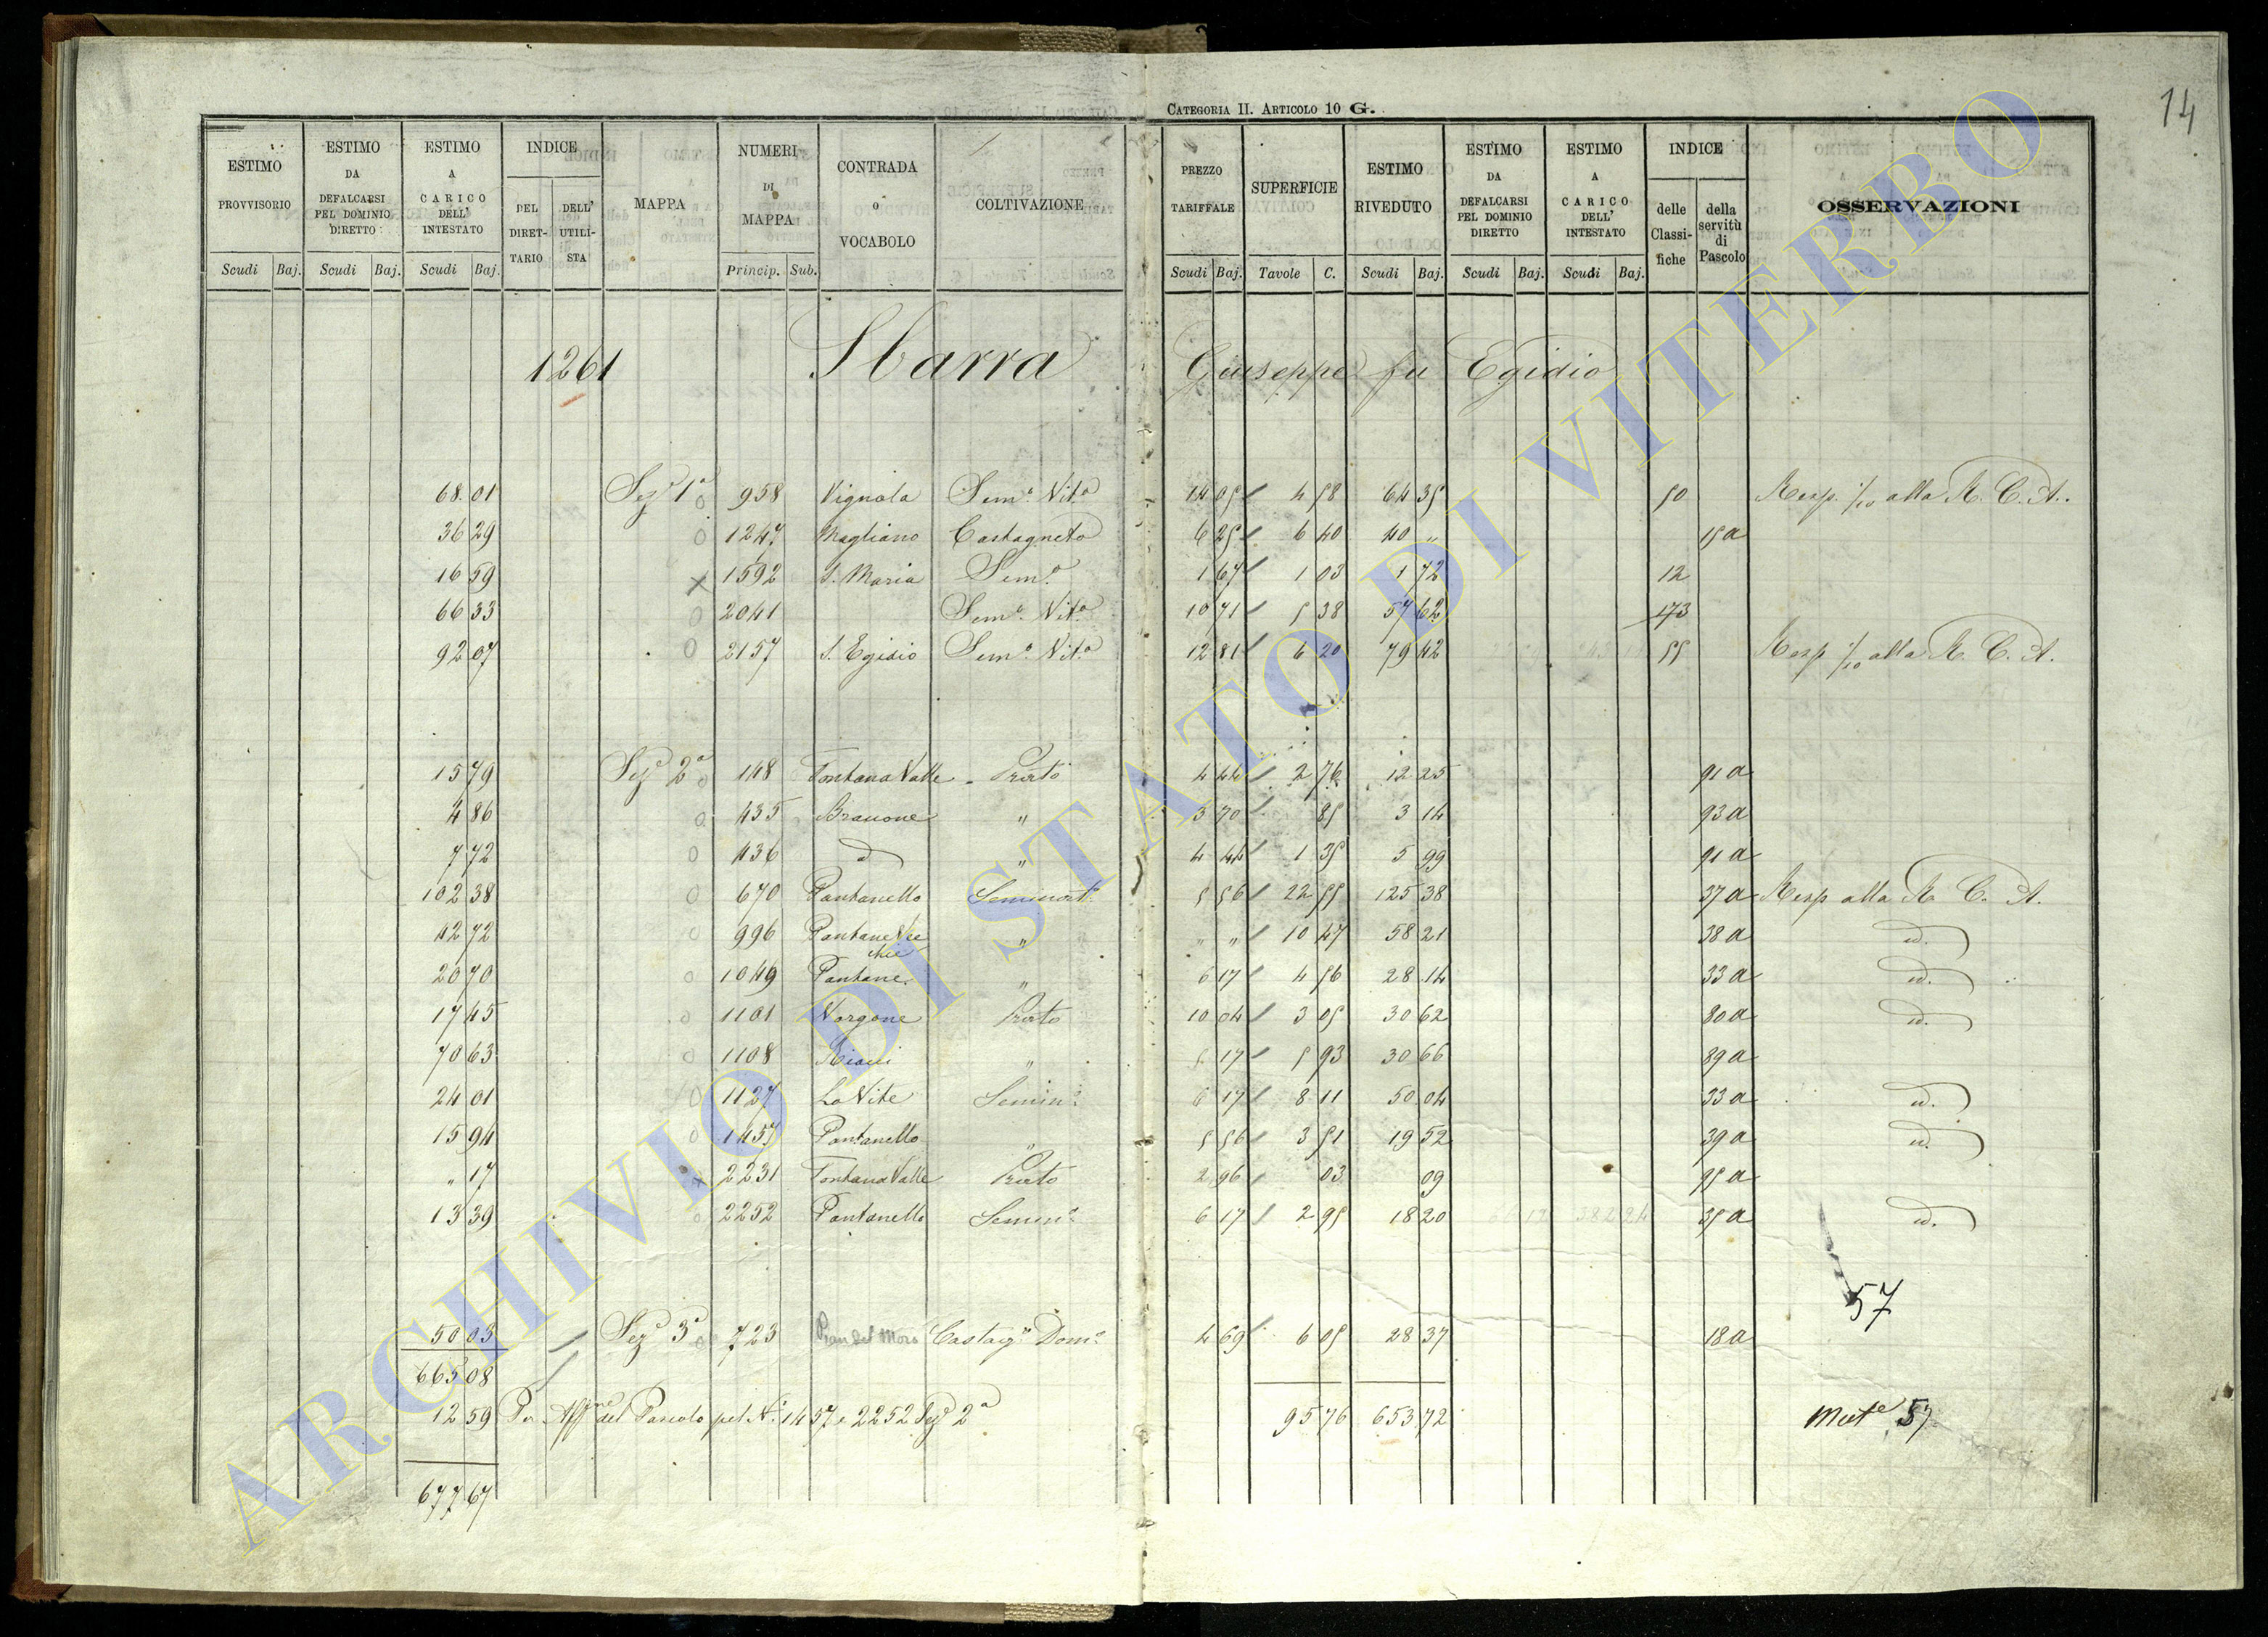 CATEGORIA II. ARTICOLO 10 G.
14
ESTIMO PROVVISORIO Scudi Baj.
ESTIMO DA DEFALCARSI PEL DOMINIO DIRETTO Scudi Baj.
ESTIMO A CARICO DELL' INTESTATO Scudi Baj.
INDICE DEL DIRET-TARIO DELL' UTILI-STA
MAPPA
NUMERI DI MAPPA Princip. Sub.
CONTRADA o VOCABOLO
COLTIVAZIONE
PREZZO TARIFFALE Scudi Baj.
SUPERFICIE Tavole C.
ESTIMO RIVEDUTO Scudi Baj.
ESTIMO DA DEFALCARSI PEL DOMINIO DIRETTO Scudi Baj.
ESTIMO A CARICO DELL' INTESTATO Scudi Baj.
INDICE delle Classi-fiche della servitù di Pascolo
OSSERVAZIONI
1261 Sbarra Giuseppe fu Egidio
68 01 Seze 1a 958 Vignola Semo Vito 14 05 4 58 64 35 50 Resp. 1/10 alla R. C. A.
36 29 1247 Magliano Castagneto 6 25 6 40 40 " 15a
16 59 1592 S. Maria Semo 1 67 1 03 1 72 12
66 33 2041 Semo Vito 10 71 5 38 57 62 173
92 07 2157 S. Egidio Semo Vito 12 81 6 20 79 42 55 Resp 1/10 alla R. C. A.
15 79 Sezе 2a 148 Fontana Valle Prato 4 44 2 76 12 25 91a
4 86 435 " 3 70 85 3 14 93a
7 72 436 d " 4 44 1 35 5 99 91a
102 38 670 Pantanello Seminato 5 56 22 55 125 38 37a Resp alla R. C. A.
42 72 996 Pantane Vecchie " " " 10 47 58 21 38a id.
20 70 1049 Pantane " 6 17 4 56 28 14 33a id.
17 45 1101 Vorgone Prato 10 04 3 05 30 62 80a id.
70 63 1108 " 5 17 5 93 30 66 89a
24 01 1127 La Vite Semino 6 17 8 11 50 04 33a id.
15 94 1457 Pantanello " 5 56 3 51 19 52 39a id.
" 17 2231 Fontana Valle Prato 2 96 03 09 95a
13 39 2252 Pantanello Semino 6 17 2 95 18 20 35a id.
57
50 03 Sezе 3a 723 Pian del Moro Castago Domo 4 69 6 05 28 37 18a
665 08
12 59 Per del Pascolo pel No 1457 e 2252 Seze 2a 95 76 653 72 57
677 67
ARCHIVIO DI STATO DI VITERBO